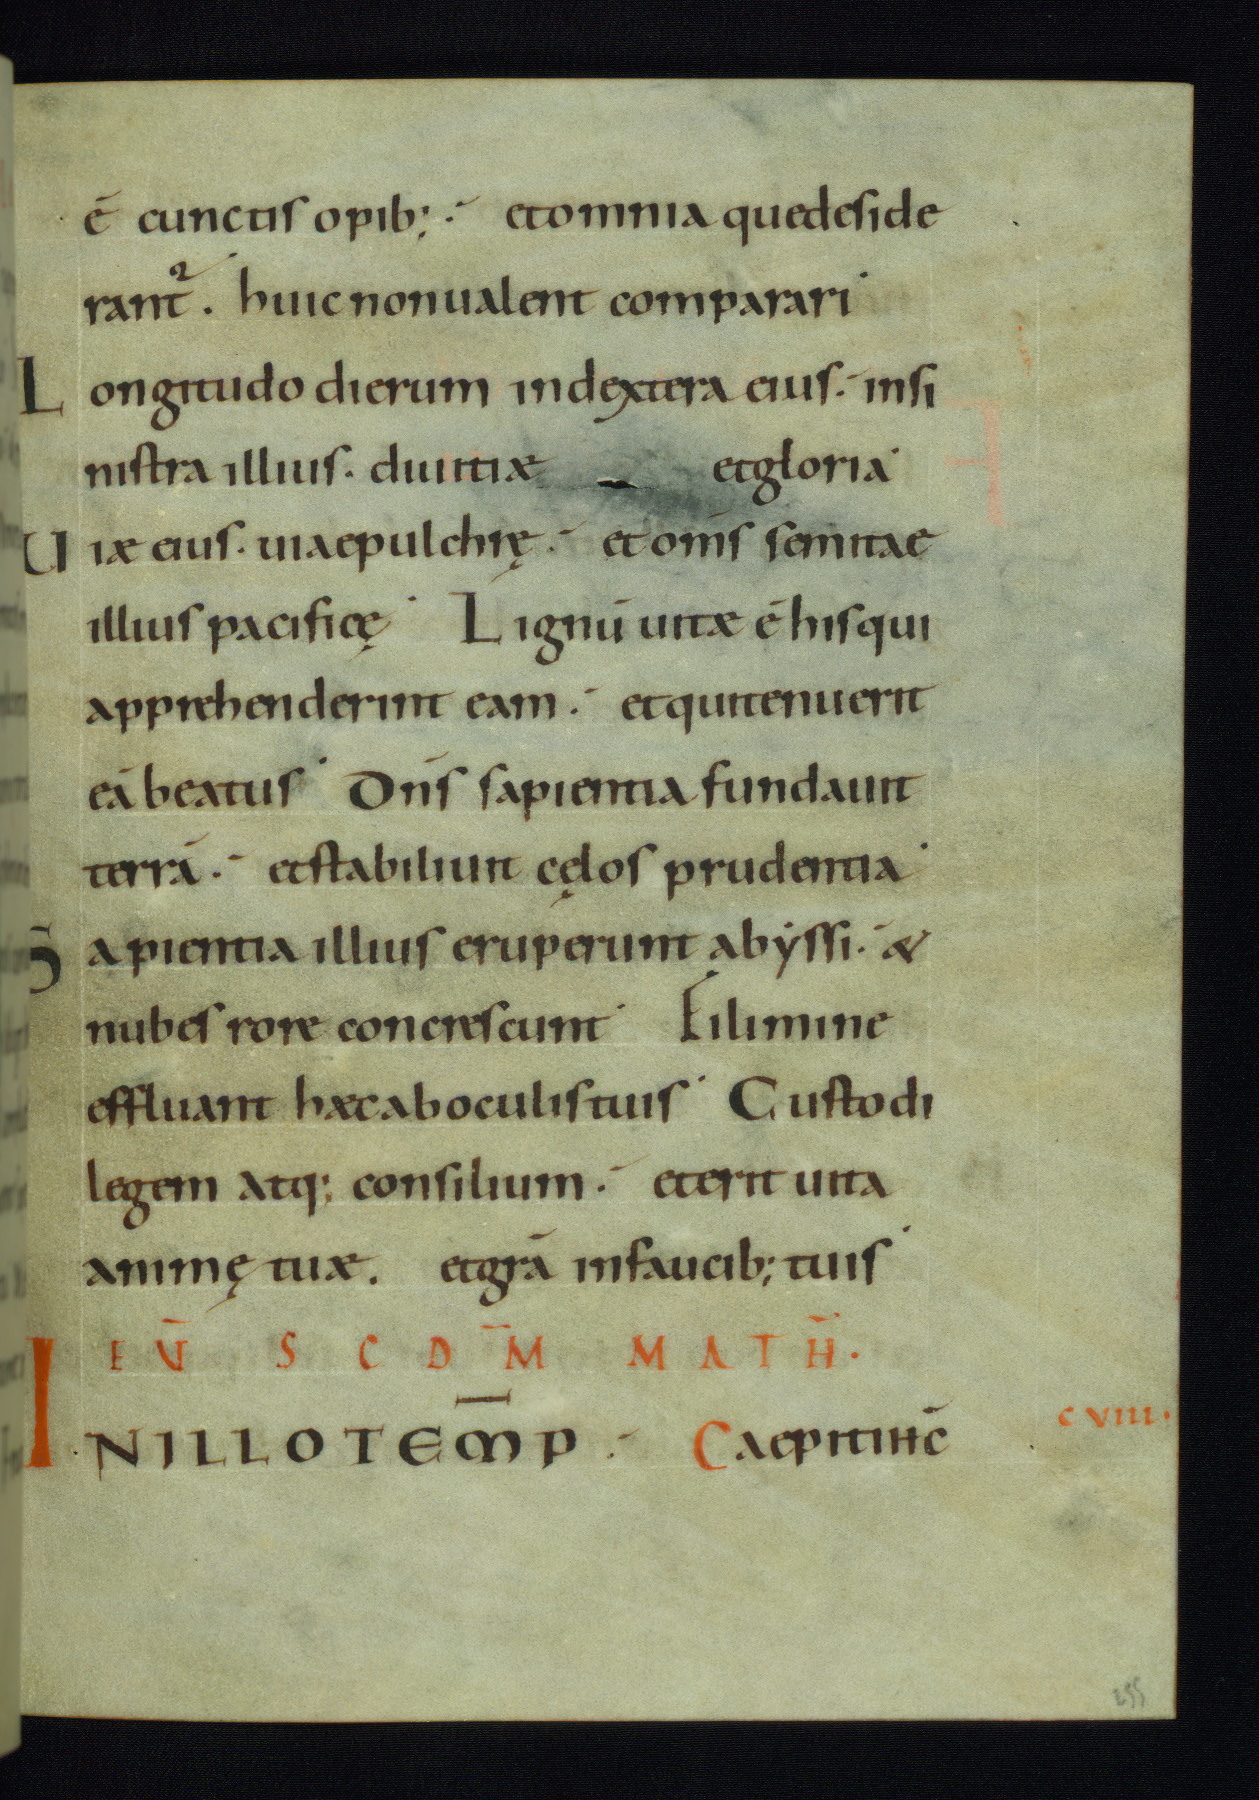 ē cunctis opib; et omnia que deside
rant᷑. huic non ualent comparari
Longitudo dierum in dextera eius. in si
nistra illius. diuitiæ et gloria
Uiæ eius. uiae pulchrę. et om̄s semitae
illius pacificę Lignū uitæ ē his qui
apprehenderint eam. et qui tenuerit
eā beatus Dn̄s sapientia fundauit
terrā. et stabiliuit cęlos prudentia
Sapientia illius eruperunt abẏssi. &
nubes rore concrescunt Fili mi ne
effluant hæc ab oculis tuis Custodi
legem atq; consilium. et erit uita
animę tuæ. et grā in faucib; tuis
EŪ SCDM̄ MATH̄.
IN ILLO TEM̄P. Caepit ih̄c
CVIIII.
255